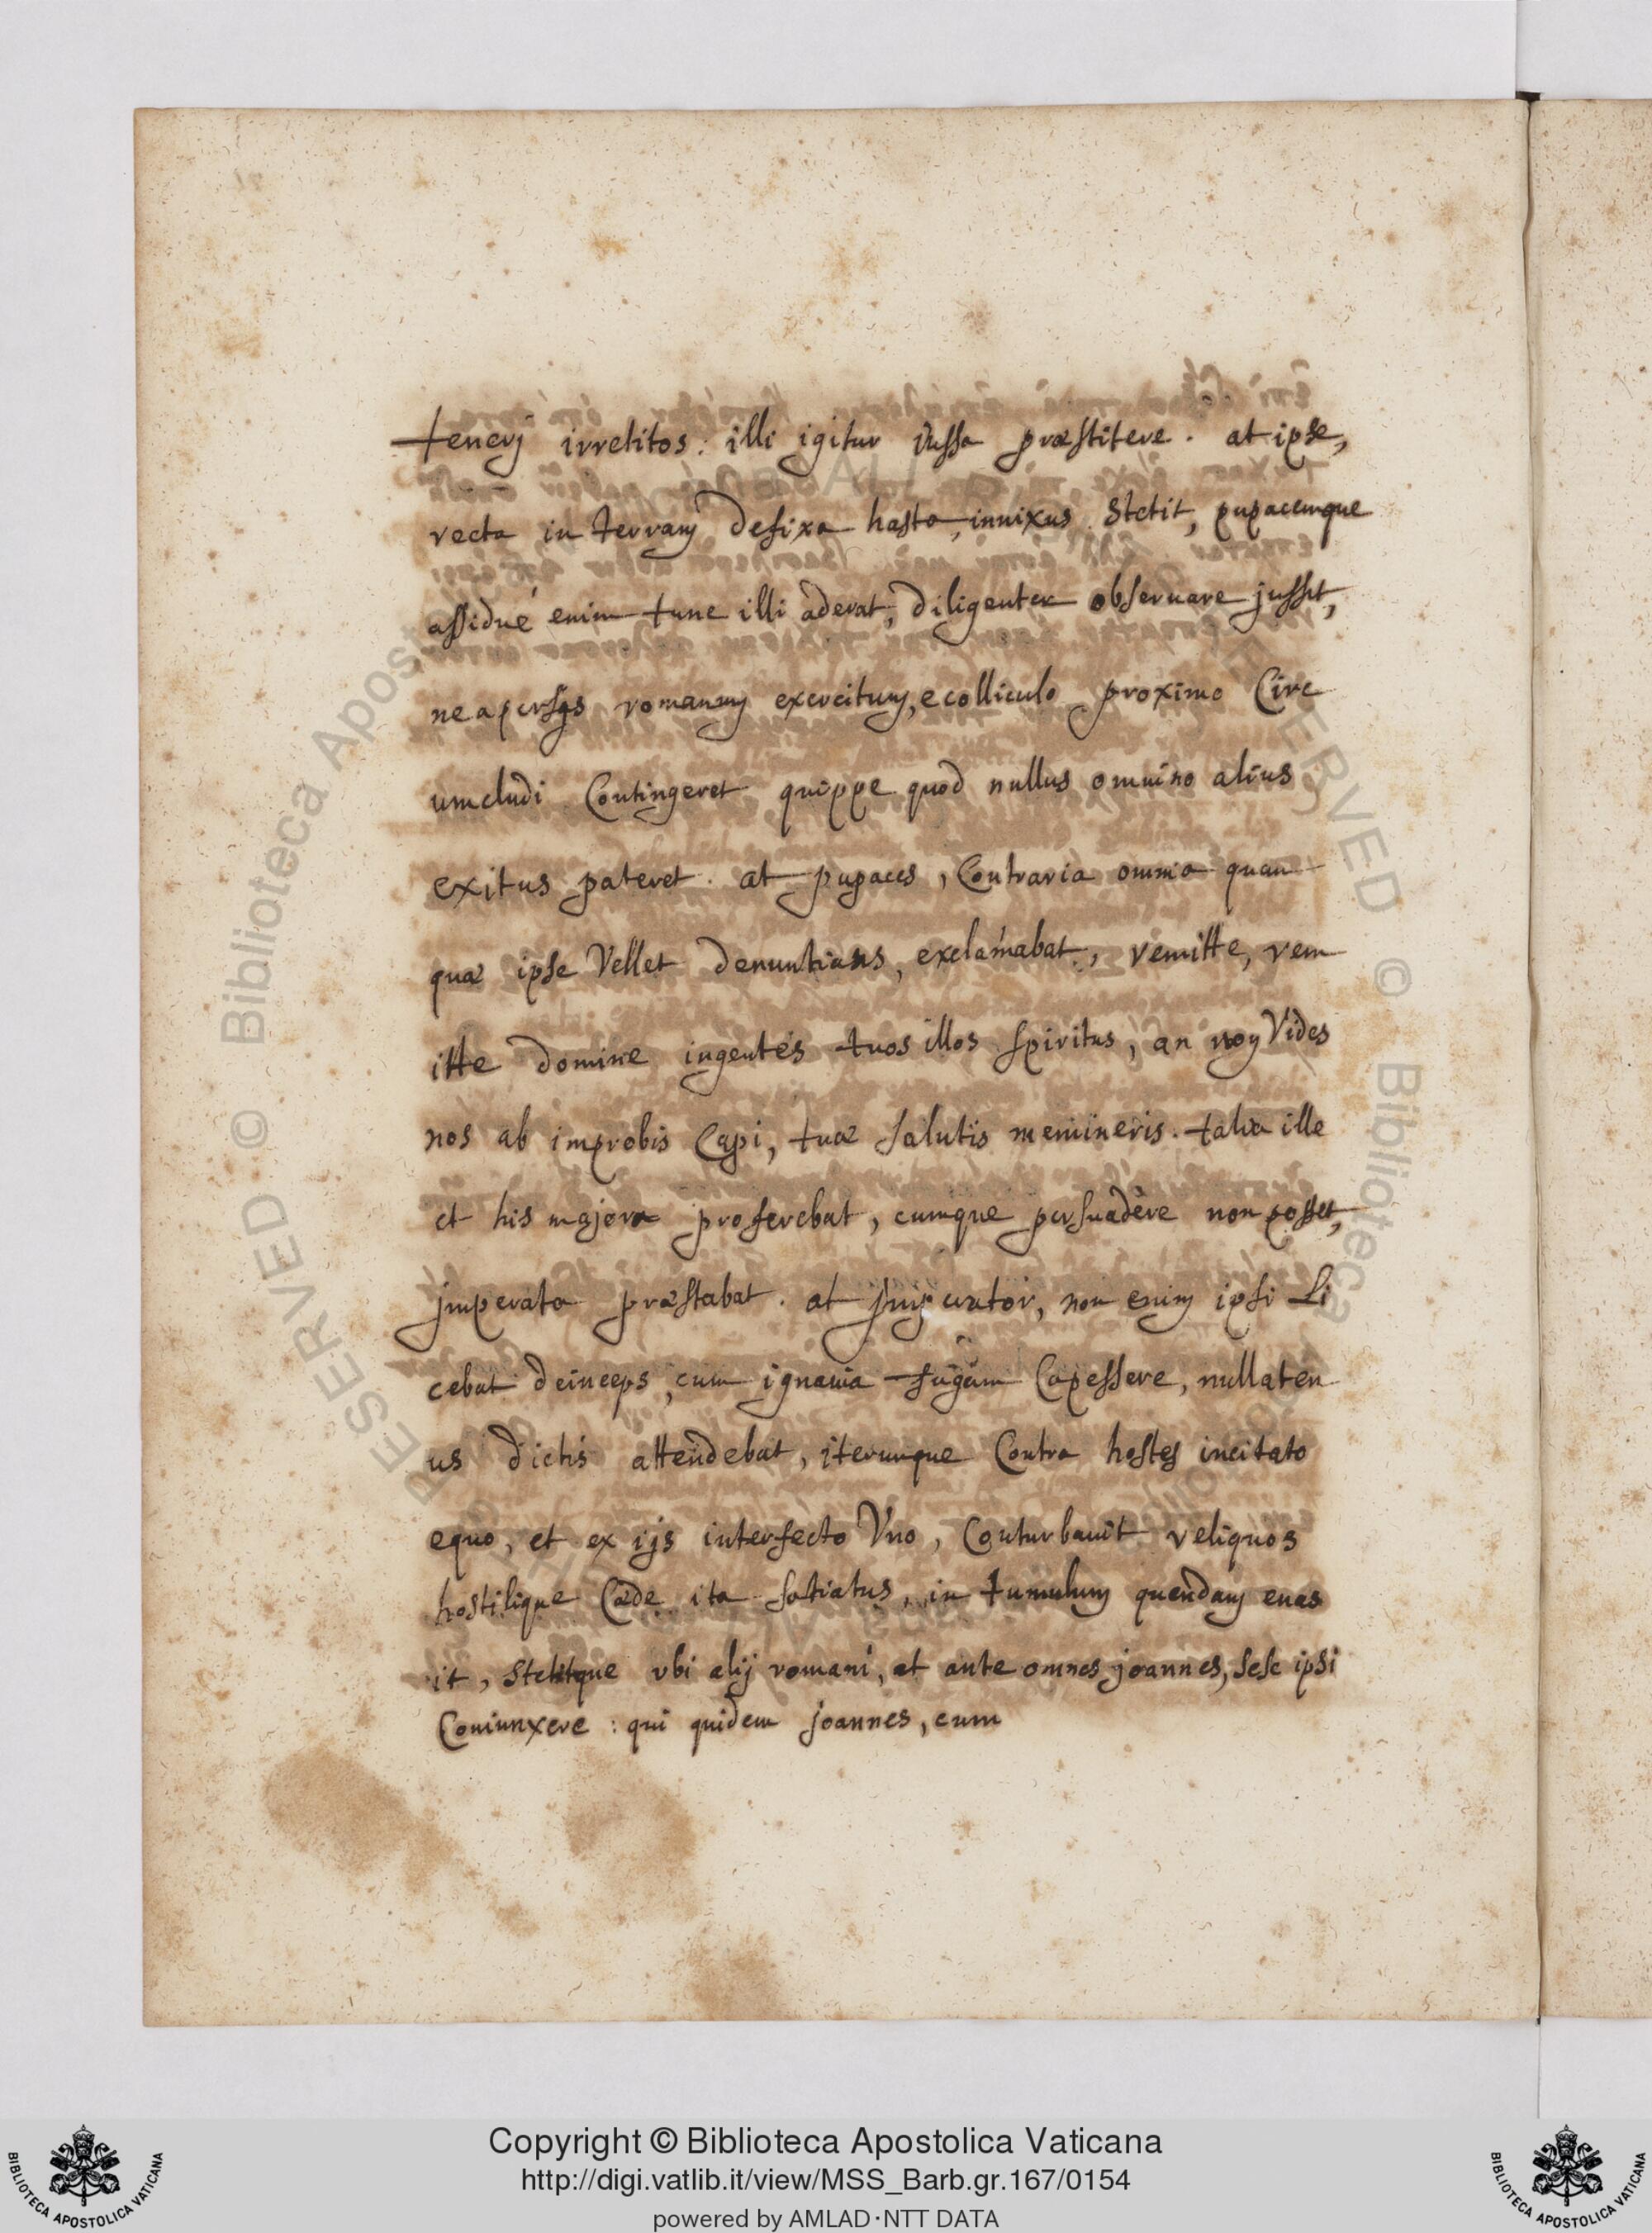 tenerj irretitos: illi igitur iussa præstitere. at ipse,
recta in terram defixa hasta, innixus stetit, pupacemque
assidué enim tunc illi aderat, diligenter obseruare jussit,
ne a persijs romanum exercitum, e colliculo proximo Circ
umcludi Contingeret quippe quod nullus omnino alius
exitus pateret. at pupaces, Contraria omnia quan
quæ ipse Vellet denuntians, exclamabat, remitte, rem
itte domine ingentes tuos illos spiritus, an non Vides
nos ab improbis Capi, tuæ salutis memineris. talia ille
et his majora proferebat, cumque persuadere non posset,
jmperata præstabat. at jmperator, non enim ipsi Li
cebat deinceps, cum ignauia fugam Capessere, nullaten
us dictis attendebat, iterumque Contra hostes incitato
equo, et ex ijs interfecto Vno, Conturbauit reliquos
hostilique Cæde ita satiatus, in tumulum quendam euas
it, stetitque vbi alij romani, et ante omnes joannes, sese ipsi
Coniunxere: qui quidem joannes, cum
Copyright © Biblioteca Apostolica Vaticana
http://digi.vatlib.it/view/MSS_Barb.gr.167/0154
powered by AMLAD·NTT DATA
BIBLIOTECA APOSTOLICA VATICANA
BIBLIOTECA APOSTOLICA VATICANA